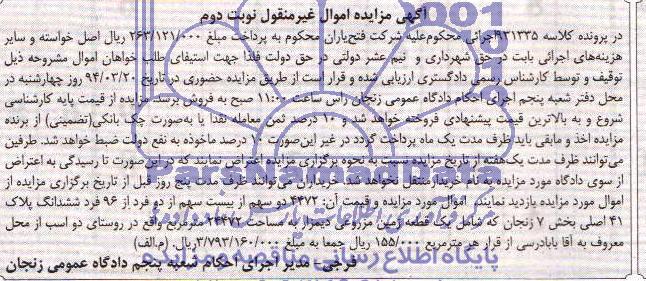 آگهی مزایده اموال غیرمنقول نوبت دوم
در پرونده کلاسه ۹۲۱۳۳۵اجرائی محکوم‌علیه شرکت فتح‌یاران محکوم به پرداخت مبلغ ۲۶۳/۱۲۱/۰۰۰ ریال اصل خواسته و سایر
هزینه‌های اجرائی بابت در حق شهرداری و نیم عشر دولتی در حق دولت فلذا جهت استیفای طلب خواهان اموال مشروحه ذیل
توقیف و توسط کارشناس رسمی دادگستری ارزیابی شده و قرار است از طریق مزایده حضوری در تاریخ ۹۴/۰۲/۲۰ روز چهارشنبه در
محل دفتر شعبه پنجم اجرای احکام دادگاه عمومی زنجان راس ساعت ۱۱:۰۰ صبح به فروش برسد. مزایده از قیمت پایه کارشناسی
شروع و به بالاترین قیمت پیشنهادی فروخته خواهد شد و ۱۰ درصد ثمن معامله نقدا یا به‌صورت چک بانکی(تضمینی) از برنده
مزایده اخذ و مابقی باید ظرف مدت یک ماه پرداخت گردد در غیر این‌صورت ۱۰ درصد ماخوذه به نفع دولت ضبط خواهد شد. طرفین
می‌توانند ظرف مدت یک‌هفته از تاریخ مزایده نسبت به نحوه برگزاری مزایده اعتراض نمایند که در این‌صورت تا رسیدگی به اعتراض
از سوی دادگاه مورد مزایده به نام خریدار منتقل نخواهد شد. خریداران می‌توانند ظرف مدت پنج روز قبل از تاریخ برگزاری مزایده از
اموال مورد مزایده بازدید نمایند. اموال مورد مزایده و قیمت آن: ۴۴۷۲ دو سهم از بیست سهم از دو فرد از ۹۶ فرد ششدانگ پلاک
۴۱ اصلی بخش ۷ زنجان که شامل یک قطعه زمین مزروعی دیمزار به مساحت ۲۴۴۷۲ مترمربع واقع در روستای دو اسب از محل
معروف به آقا بابادرسی از قرار هر مترمربع ۱۵۵/۰۰۰ ریال جمعا به مبلغ ۳/۷۹۳/۱۶۰/۰۰۰ریال. (م.الف)
فرجی- مدیر اجرای احکام شعبه پنجم دادگاه عمومی زنجان
ParsNamadData
پایگاه اطلاع رسانی مناقصه و مزایده